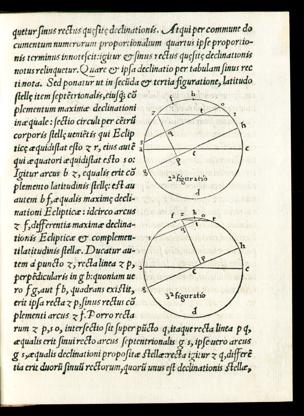 quetur sinus rectus quesitę declinationis. Atqui per commune do
cumentum numerorum proportionalium quartus ipse proportio-
nis terminus innotescit: igitur & sinus rectus quesitę declinationis
notus relinquetur. Quare & ipsa declinatio per tabulam sinus rec
ti nota. Sed ponatur ut in secūda & tertia figuratione, latitudo
stellę item septētrionalis, eiusq́; cō
plementum maximæ declinationi
inæquale: sectio circuli per cētrū
corporis stellę uenietis qui Eclip
ticę æquidistat esto z r, eius autē
qui æquatori æquidistat esto s o:
Igitur arcus b z, equalis erit cō
plemento latitudinis stellę: est au
autem b f, æqualis maximę decli-
nationi Eclipticæ: idcirco arcus
z f, differentia maximæ declina-
tionis Eclipticæ & complementi
latitudinis stellæ. Ducatur au-
tem à puncto z, recta linea z p,
perpēdicularis in g h: quoniam ue
ro f g, aut f h, quadrans existit,
erit ipsa recta z p, sinus rectus cō
plementi arcus z f. Porro recta
rum z p, s o, intersectio sit super pūcto q, itaque recta linea p q,
æqualis erit sinui recto arcus septentrionalis g s, ipse uero arcus
g s, æqualis declinationi propositæ stellæ: recta igitur z q, differē
tia erit duorū sinuū rectorum, quorū unus est declinationis stellæ,
2ª figuratio
d
3ª figuratio
d